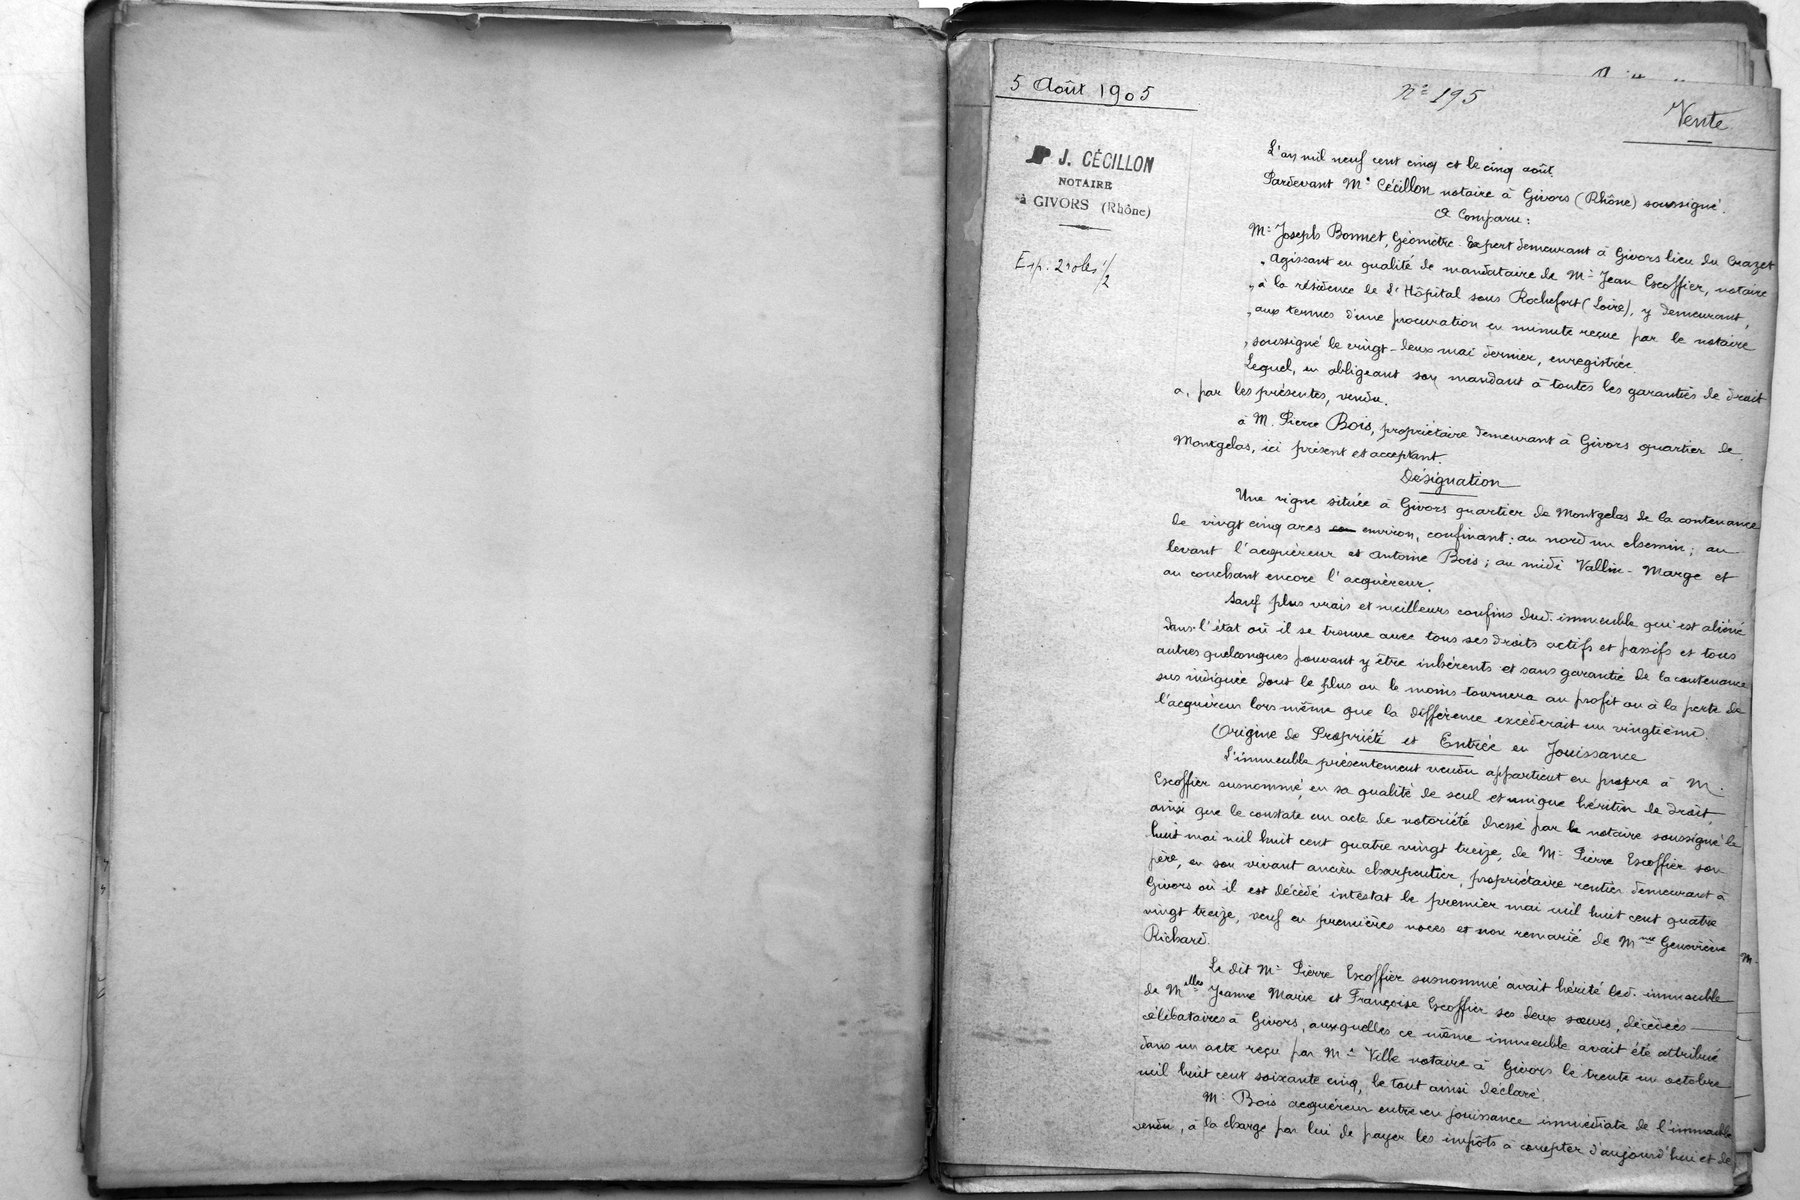 5 Août 1905
Nº 195
Vente
J. CÉCILLON
NOTAIRE
à GIVORS (Rhône)
Exp. 2 roles 1/2
L'an mil neuf cent cinq et le cinq août
Pardevant Mᵉ Cécillon notaire à Givors (Rhône) soussigné.
A Comparu :
Mʳ Joseph Bonnet, Géomètre-Expert demeurant à Givors lieu du Crazet
„ Agissant en qualité de mandataire de Mʳ Jean Escoffier, notaire
„ à la résidence de L'Hôpital sous Rochefort (Loire), y demeurant,
„ aux termes d'une procuration en minute reçue par le notaire
„ soussigné le vingt-deux mai dernier, enregistrée
Lequel, en obligeant son mandant à toutes les garanties de droit
a, par les présentes, vendu.
à M. Pierre Bois, propriétaire demeurant à Givors quartier de
Montgelas, ici présent et acceptant.
Désignation
Une vigne située à Givors quartier de Montgelas de la contenance
de vingt cinq ares environ, confinant : au nord un chemin ; au
levant l'acquéreur et Antoine Bois ; au midi Vallin-Marge et
au couchant encore l'acquéreur.
Sauf plus vrais et meilleurs confins dud. immeuble qui est aliéné
dans l'état où il se trouve avec tous ses droits actifs et passifs et tous
autres quelconques pouvant y être inhérents et sans garantie de la contenance
sus indiquée dont le plus ou le moins tournera au profit ou à la perte de
l'acquéreur lors même que la différence excèderait un vingtième.
Origine de Propriété et Entrée en Jouissance
L'immeuble présentement vendu appartient en propre à M.
Escoffier susnommé, en sa qualité de seul et unique héritier de droit,
ainsi que le constate un acte de notoriété dressé par le notaire soussigné le
huit mai mil huit cent quatre vingt treize, de Mʳ Pierre Escoffier son
père, en son vivant ancien charpentier, propriétaire rentier demeurant à
Givors où il est décédé intestat le premier mai mil huit cent quatre
vingt treize, veuf en premières noces et non remarié de Mᵐᵉ Geneviève
Richard.
Le dit Mʳ Pierre Escoffier susnommé avait hérité led. immeuble
de Mᵉˡˡᵉˢ Jeanne Marie et Françoise Escoffier ses deux sœurs, décédées
célibataires à Givors, auxquelles ce même immeuble avait été attribué
dans un acte reçu par Mᵉ Ville notaire à Givors le trente un octobre
mil huit cent soixante cinq, le tout ainsi déclaré.
Mʳ Bois acquéreur entre en jouissance immédiate de l'immeuble
vendu, à la charge par lui de payer les impôts à compter d'aujourd'hui et de